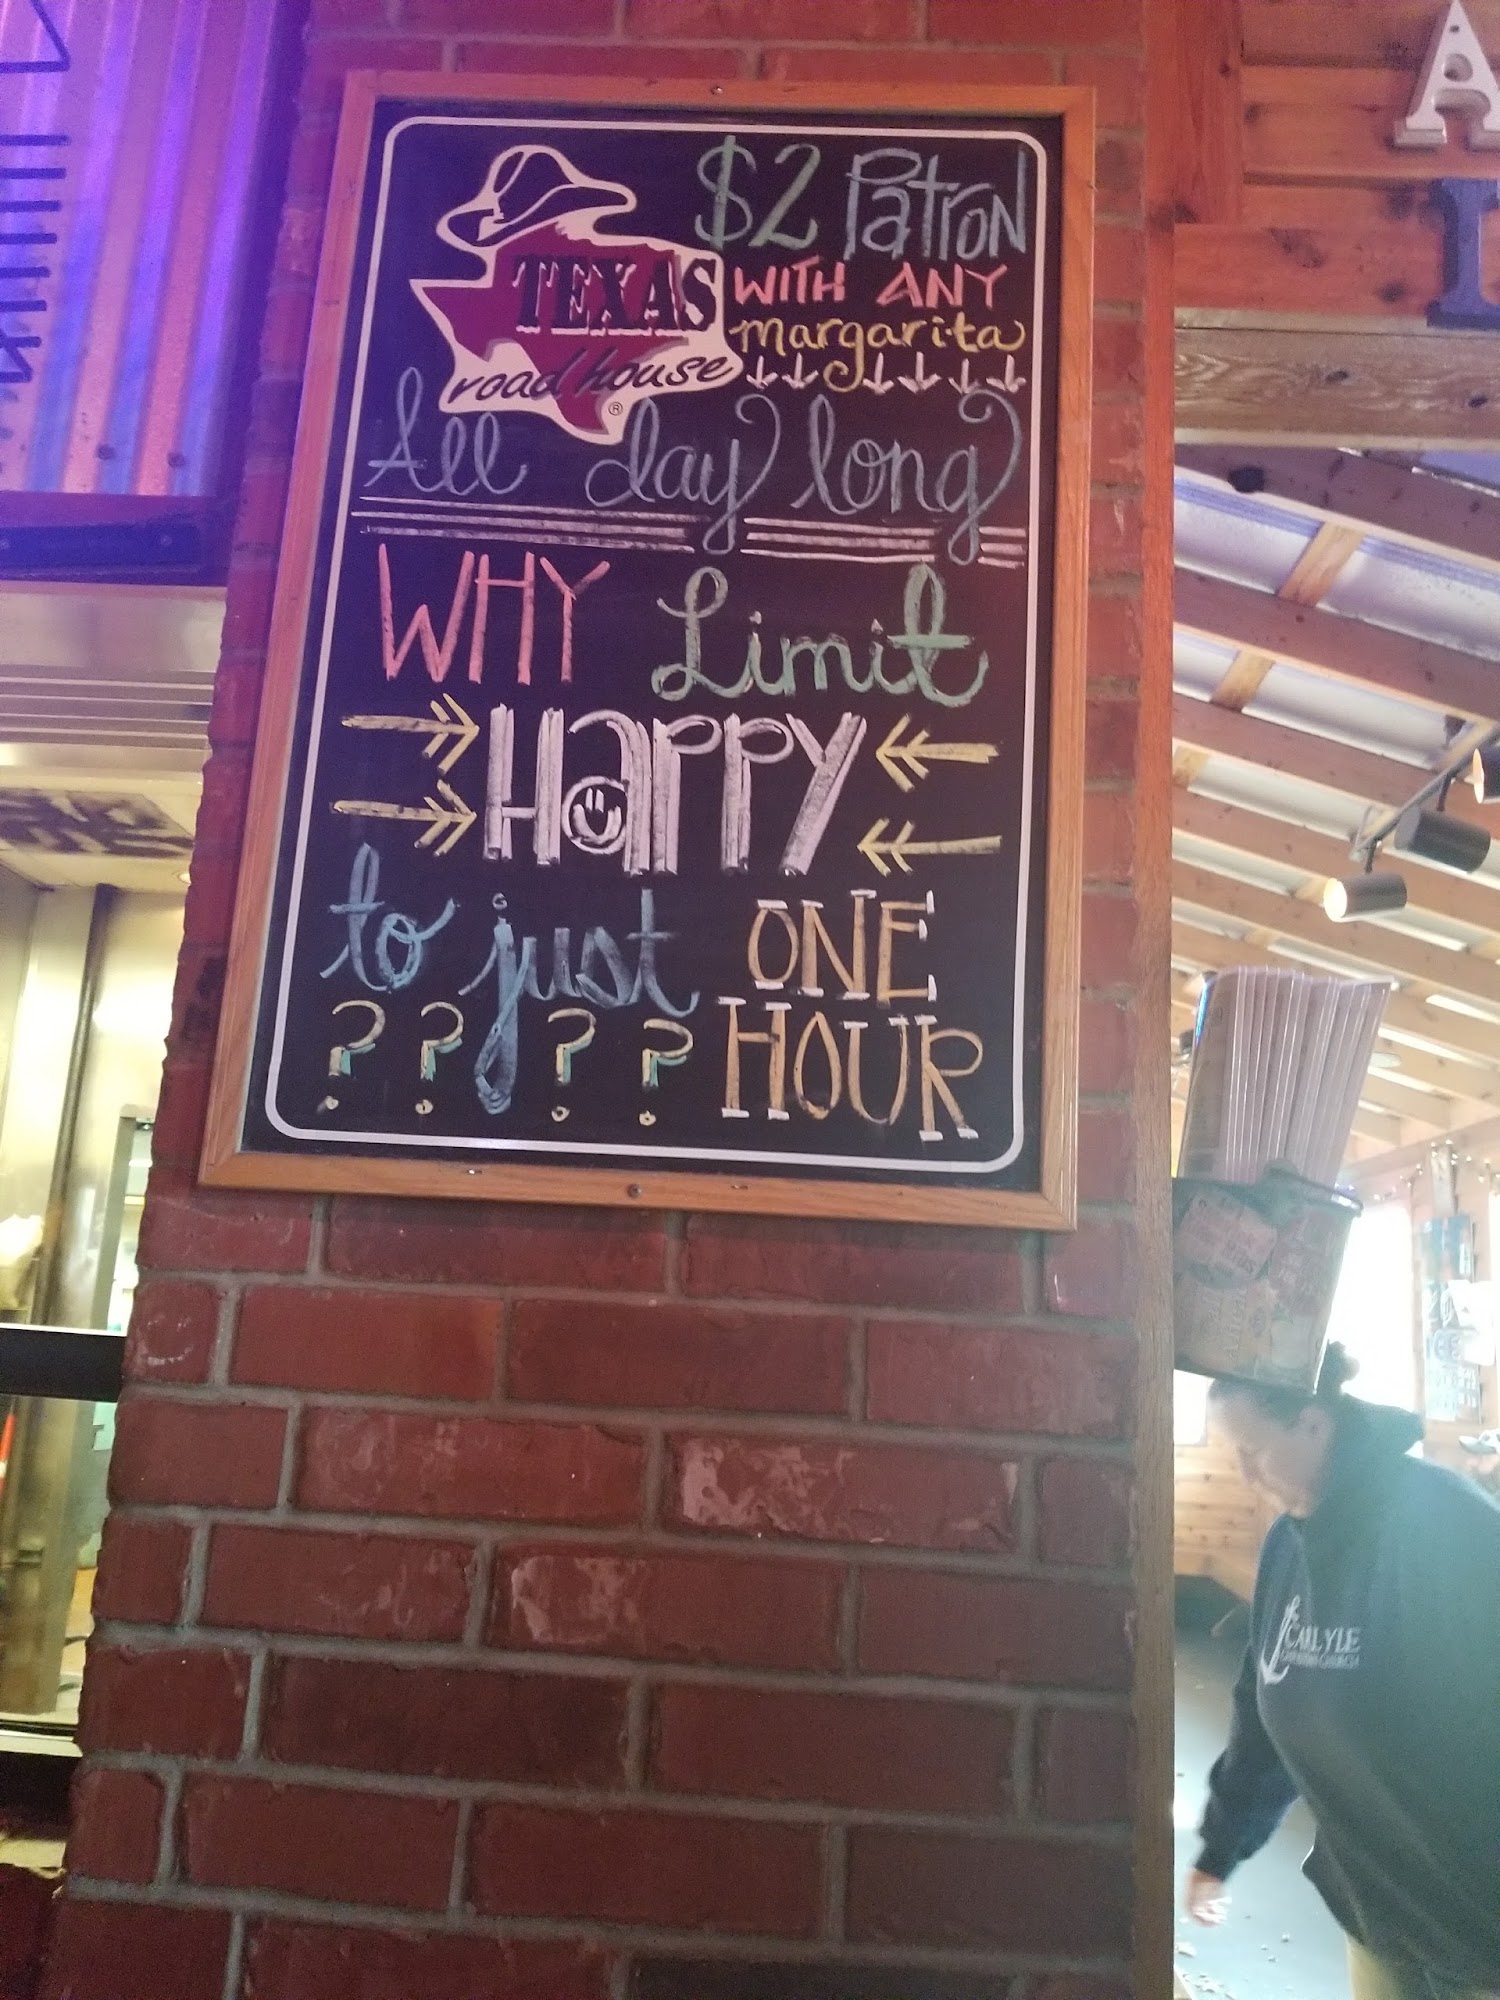 $2 Patron
TEXAS
roadhouse
®
WITH ANY
margarita
All day long
WHY Limit
Happy
to just ONE
? ? ? ? HOUR
A
L
CARLYLE